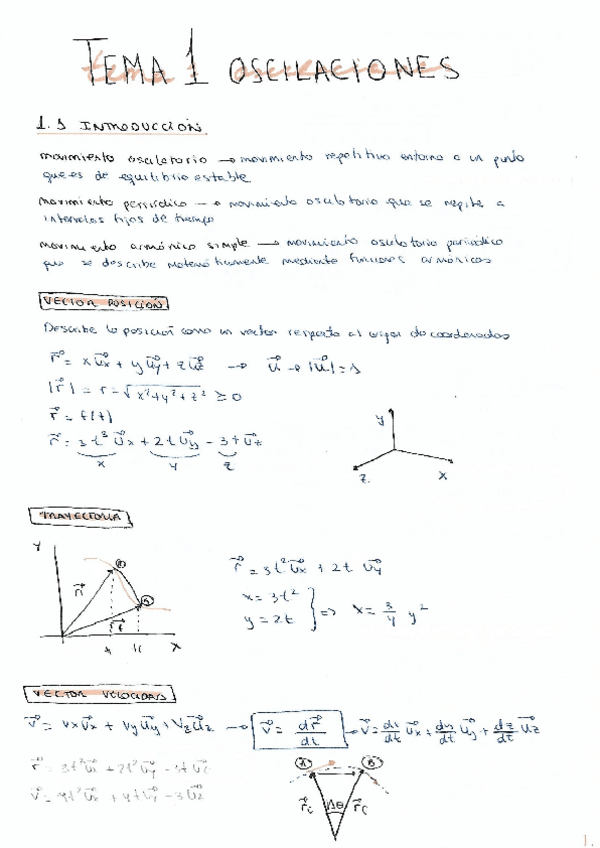 TEMA 1 OSCILACIONES
1.1 INTRODUCCIÓN
movimiento oscilatorio → movimiento repetitivo entorno a un punto
que es de equilibrio estable
movimiento periódico → movimiento oscilatorio que se repite a
intervalos fijos de tiempo
movimiento armónico simple → movimiento oscilatorio periódico
que se describe matemáticamente mediante funciones armónicas
VECTOR POSICIÓN
Describe la posición como un vector respecto al origen de coordenadas
r⃗ = x u⃗x + y u⃗y + z u⃗z → u⃗ → |u⃗| = 1
|r⃗| = r = √x²+y²+z² ≥ 0
r⃗ = f(t)
r⃗ = 3t³ u⃗x + 2t u⃗y - 3t u⃗z
x y z
y
z x
TRAYECTORIA
y
A
B
x
r⃗ = 3t² u⃗x + 2t u⃗y
x = 3t²
y = 2t
} => x = 3/4 y²
VECTOR VELOCIDAD
v⃗ = vx u⃗x + vy u⃗y + vz u⃗z → v⃗ = dr⃗/dt → v⃗ = dx/dt u⃗x + dy/dt u⃗y + dz/dt u⃗z
A B
Δθ
1.